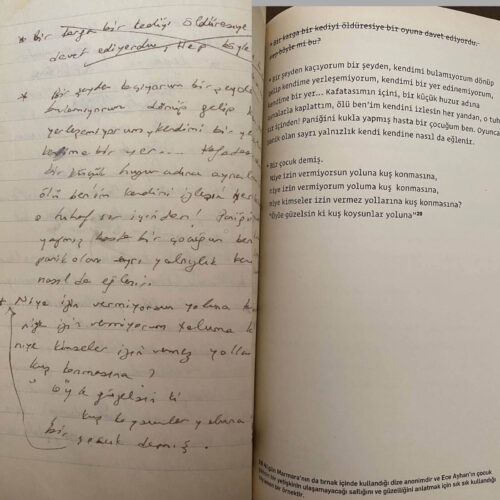 * Bir karga bir kediyi öldüresiye
davet ediyordu, Hep böyle
* Bir şeyden kaçıyorum bir şeyden
bulamıyorum dönüp gelip
yerleşemiyorum, kendimi bir
kendime bir yer....
bir küçük huzur adına
ölü benim kendini izlesin
o tuhaf sır içinden!
yapmış hasta bir çocuğum ben
panik olan sayrı yalnızlık
nasıl da eğlenir.
* Niye izin vermiyorsun yoluna
niye izin vermiyorum yoluma
niye kimseler izin vermez
kuş konmasına?
"öyle güzelsin ki
kuş koysunlar yoluna"
bir çocuk demiş.
* Bir karga bir kediyi öldüresiye bir oyuna davet ediyordu.
Hep böyle mi bu?
* Bir şeyden kaçıyorum bir şeyden, kendimi bulamıyorum dönüp
gelip kendime yerleşemiyorum, kendimi bir yer edinemiyorum,
kendime bir yer... Kafatasımın içini, bir küçük huzur adına
aynalarla kaplattım, ölü ben'im kendini izlesin her yandan, o tuh
sır içinden! Paniğini kukla yapmış hasta bir çocuğum ben. Oyuncu
panik olan sayrı yalnızlık kendi kendine nasıl da eğlenir.
* Bir çocuk demiş.
niye izin vermiyorsun yoluna kuş konmasına,
niye izin vermiyorum yoluma kuş konmasına,
niye kimseler izin vermez yollarına kuş konmasına?
"Öyle güzelsin ki kuş koysunlar yoluna"²⁰
Nilgün Marmara'nın da tırnak içinde kullandığı dize anonimdir ve Ece Ayhan'ın çocuk
bir yetişkinin ulaşamayacağı saflığını ve güzelliğini anlatmak için sık sık kullandığı
bir örnektir.